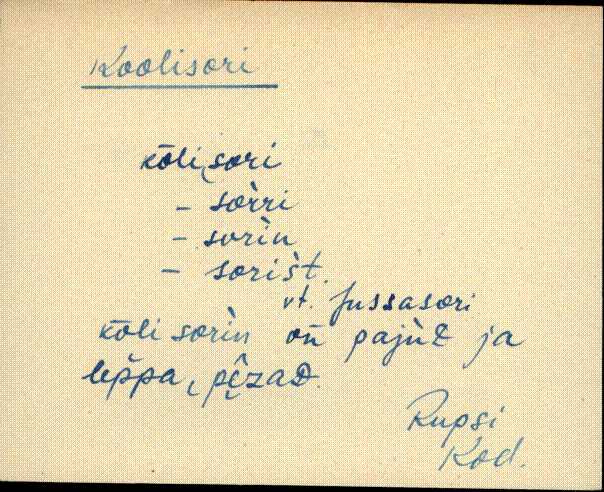 Koolisori
kōli sori
– sòrri
– sorìn
– sorìšt.
vt. jussasori
kōli sorìn on̄ pajùᴢ ja
lep̆pa, pē̮zaᴅ.
Rupsi
Kod.